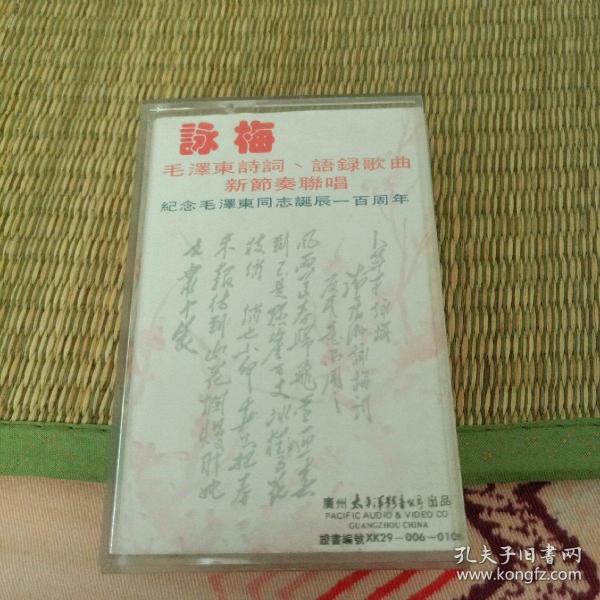 詠梅
毛澤東詩詞、語録歌曲
新節奏聯唱
紀念毛澤東同志誕辰一百周年
卜算子 詠梅
讀陸游詠梅詞
反其意而用之
風雨送春歸飛雪迎春
到已是懸崖百丈冰猶有花
枝俏 俏也不爭春只把春
來報待到山花爛熳時她
在叢中笑
廣州太平洋影音公司出品
PACIFIC AUDIO & VIDEO CO
GUANGZHOU CHINA
證書編號XK29-006-010
孔夫子旧书网
www.kongfz.com